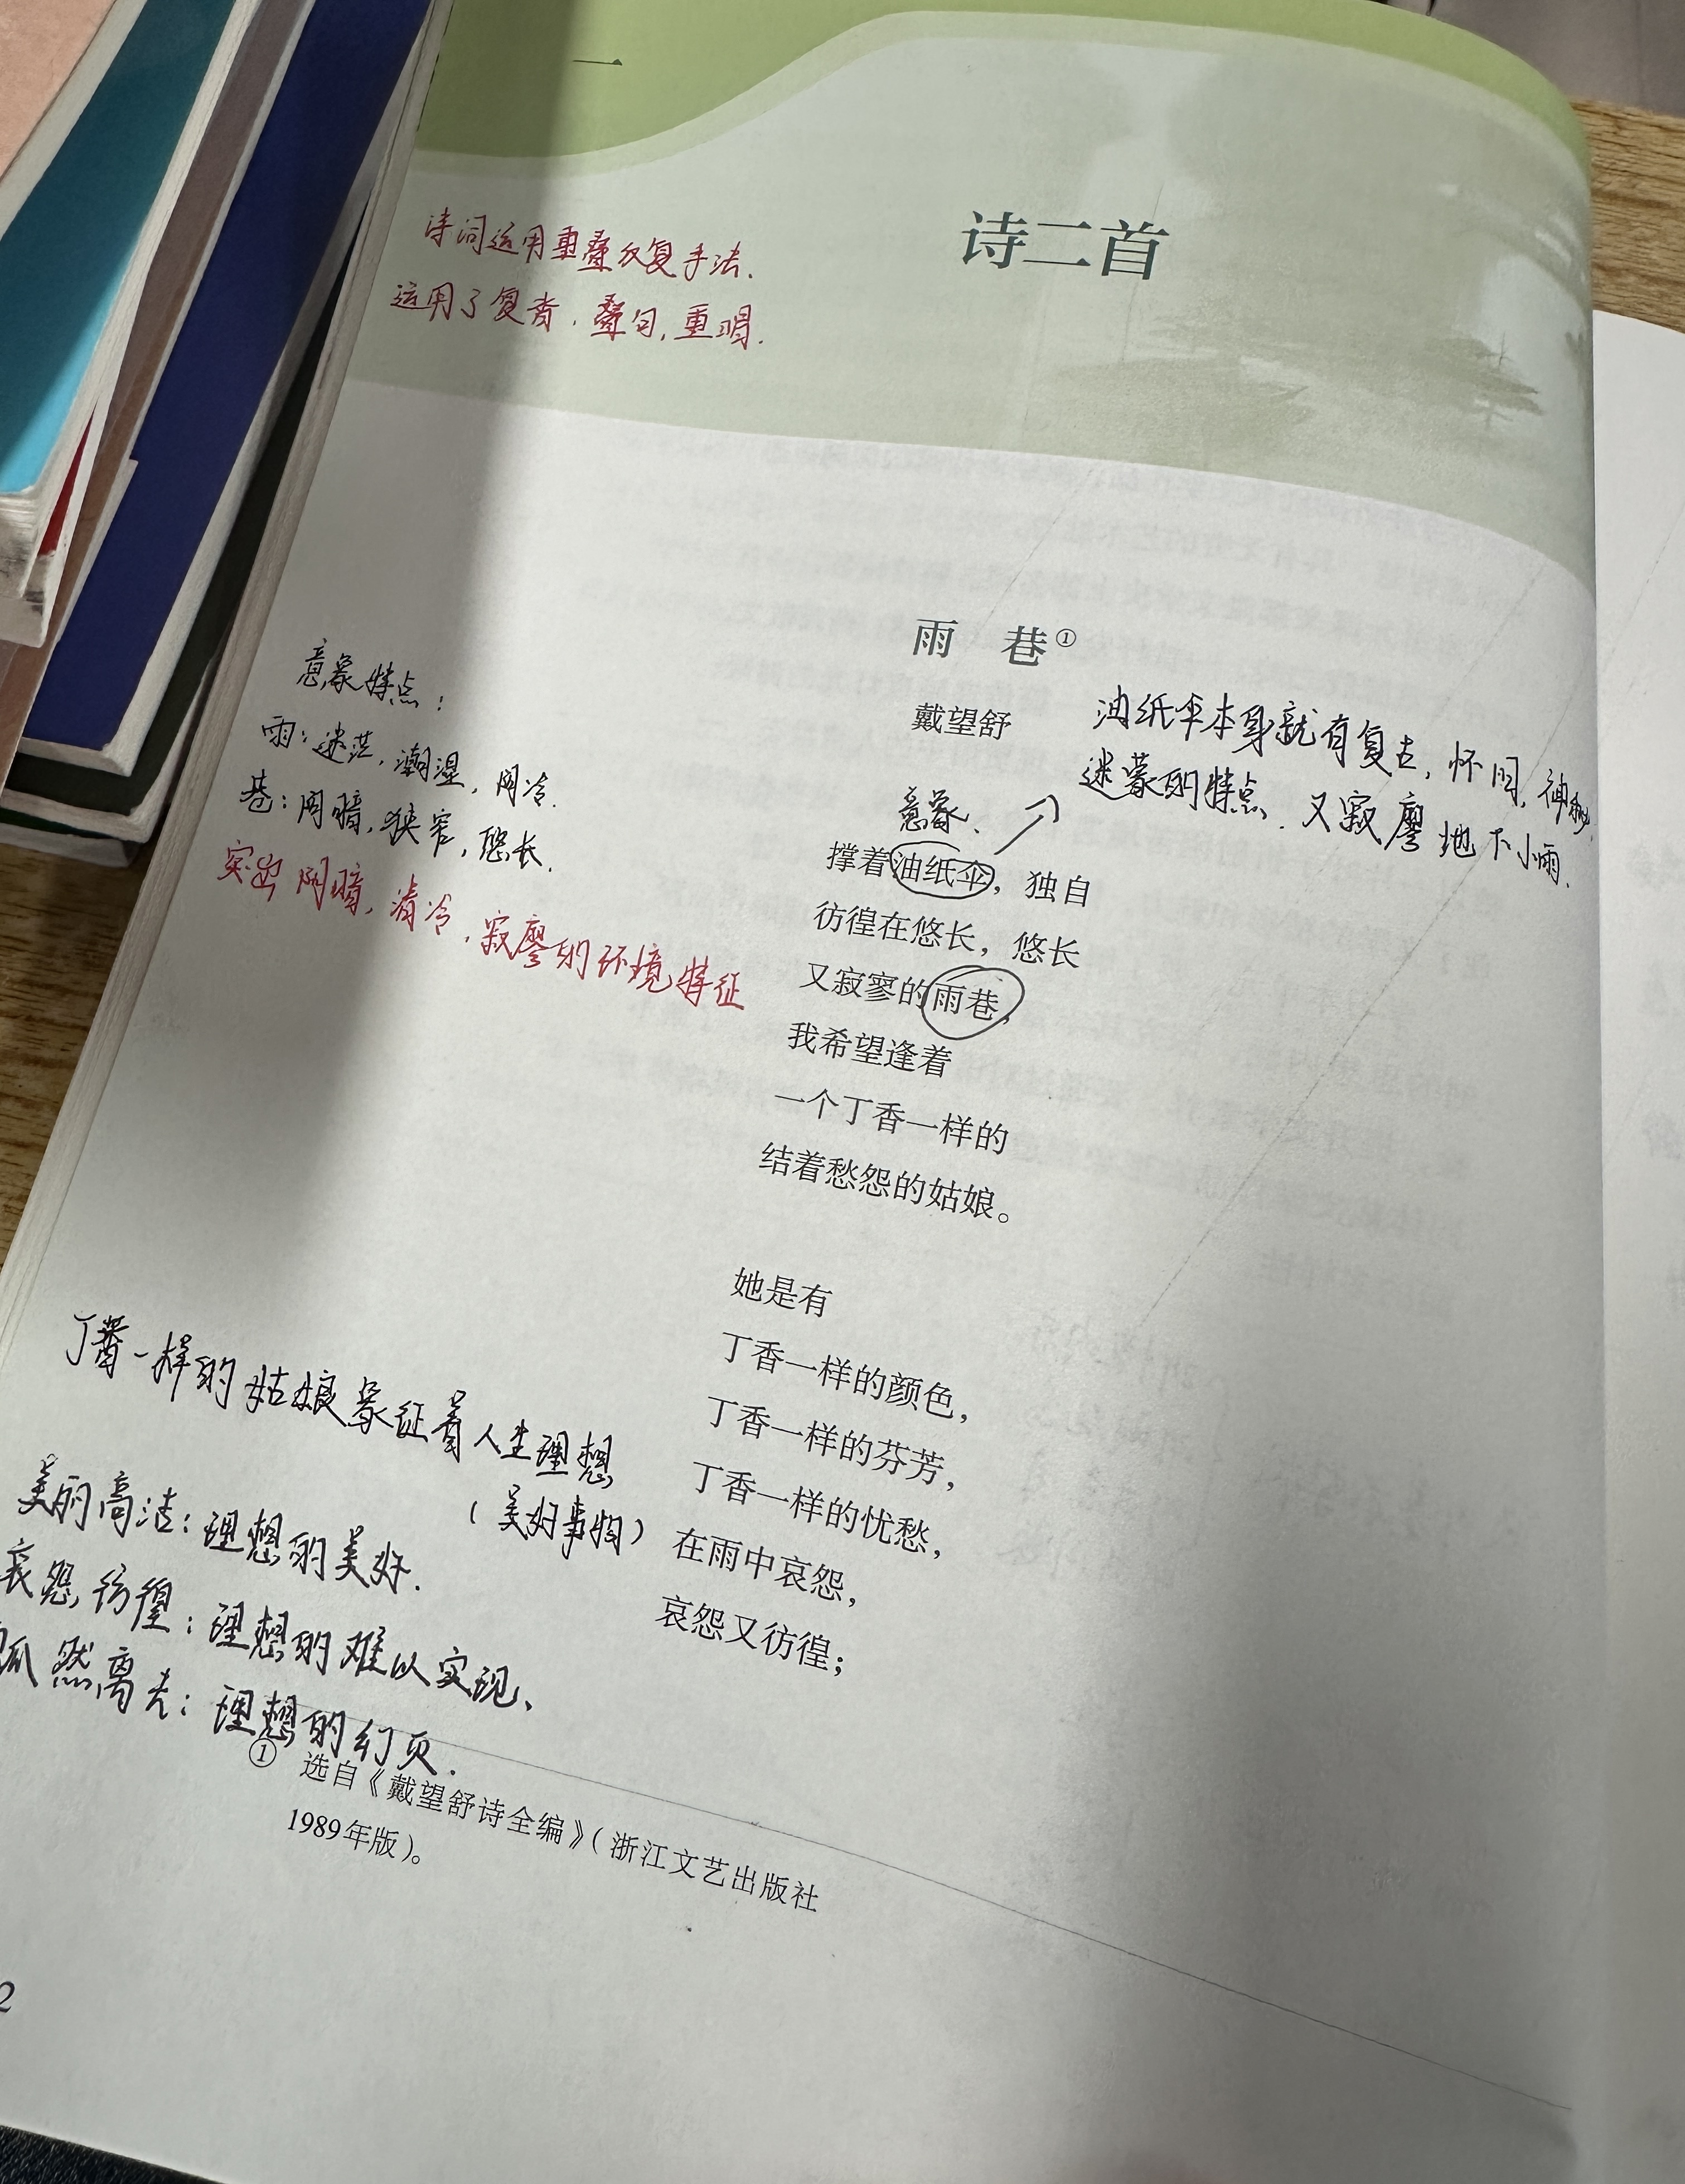 一
诗二首
诗词运用重叠反复手法.
运用了复沓.叠句,重唱.
雨 巷①
戴望舒
油纸伞本身就有复古,怀旧,神秘,
迷蒙的特点.又寂寥地下小雨.
意象特点:
雨:迷茫,潮湿,阴冷.
巷:阴暗,狭窄,悠长.
突出阴暗,清冷,寂寥的环境特征
意象.
撑着油纸伞,独自
彷徨在悠长,悠长
又寂寥的雨巷,
我希望逢着
一个丁香一样的
结着愁怨的姑娘。
她是有
丁香一样的颜色,
丁香一样的芬芳,
丁香一样的忧愁,
在雨中哀怨,
哀怨又彷徨;
丁香一样的姑娘象征着人生理想
(美好事物)
美丽高洁:理想的美好.
哀怨,彷徨:理想的难以实现、
然离去:理想的幻灭.
① 选自《戴望舒诗全编》(浙江文艺出版社
1989年版)。
2